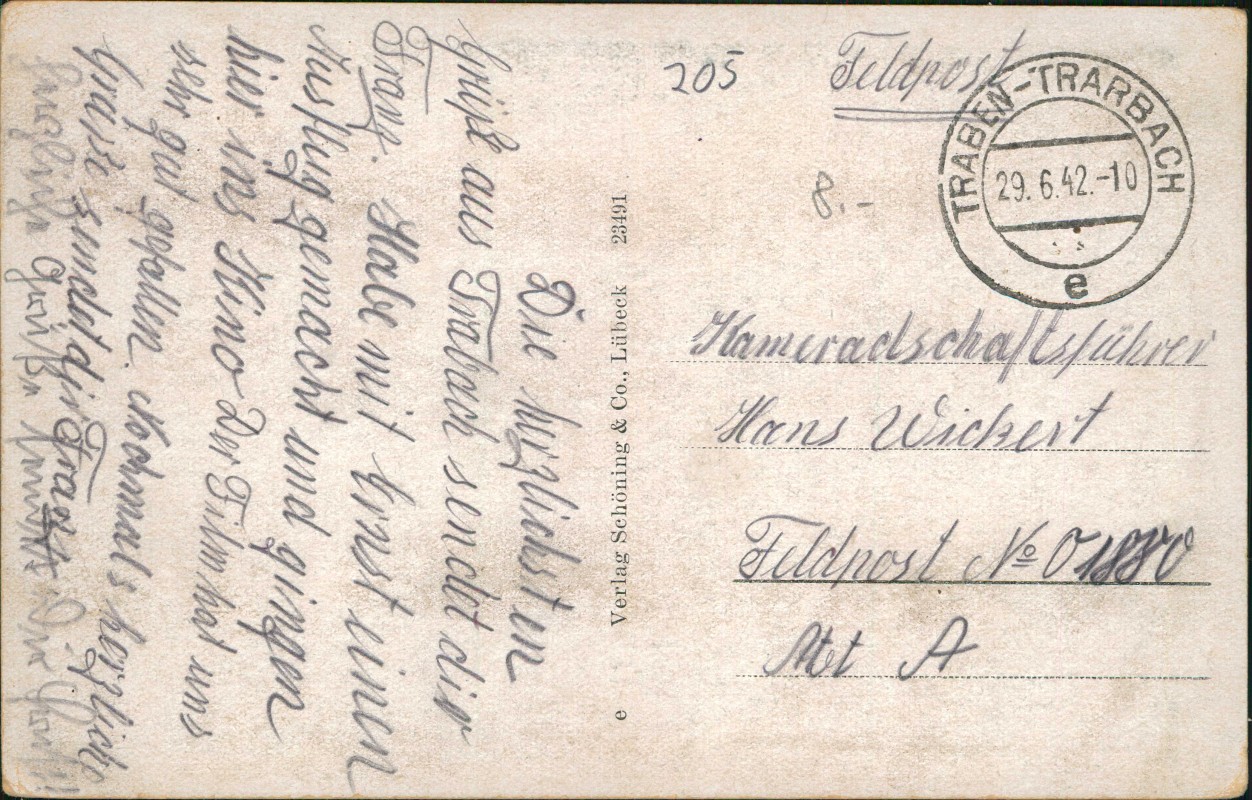 205
Feldpost
TRABEN-TRARBACH
29.6.42.-10
e
8.-
Kameradschaftsführer
Hans Wickert
Feldpost № 01880
Abt A
e Verlag Schöning & Co., Lübeck 23491
Die herzlichsten
Grüße aus Trabach sendet dir
Franz. Habe mit Ernst einen
Ausflug gemacht und gingen
hier ins Kino Der Film hat uns
sehr gut gefallen. Nochmals herzliche
Grüsse sendet dir Franz
Grüße